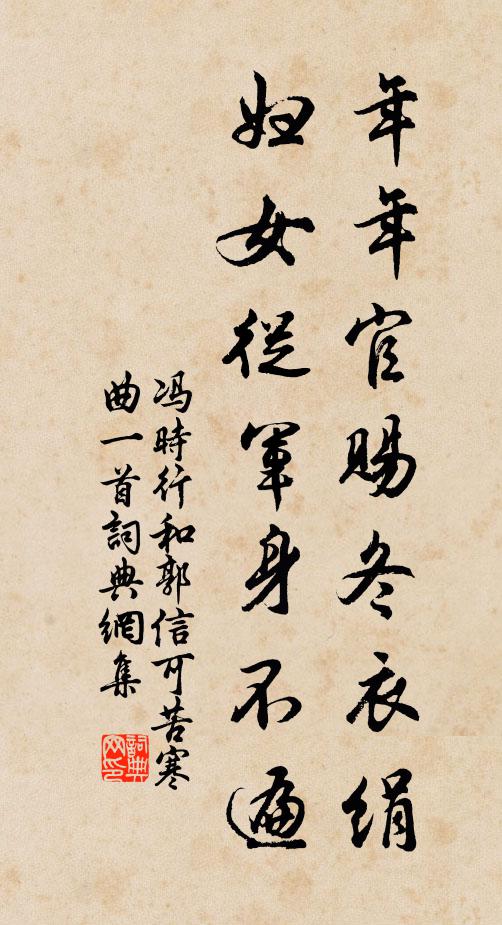 年年官賜冬衣絹
婦女從軍身不遍
冯時行和郭信可苦寒
曲一首詞典網集
詞典
网印